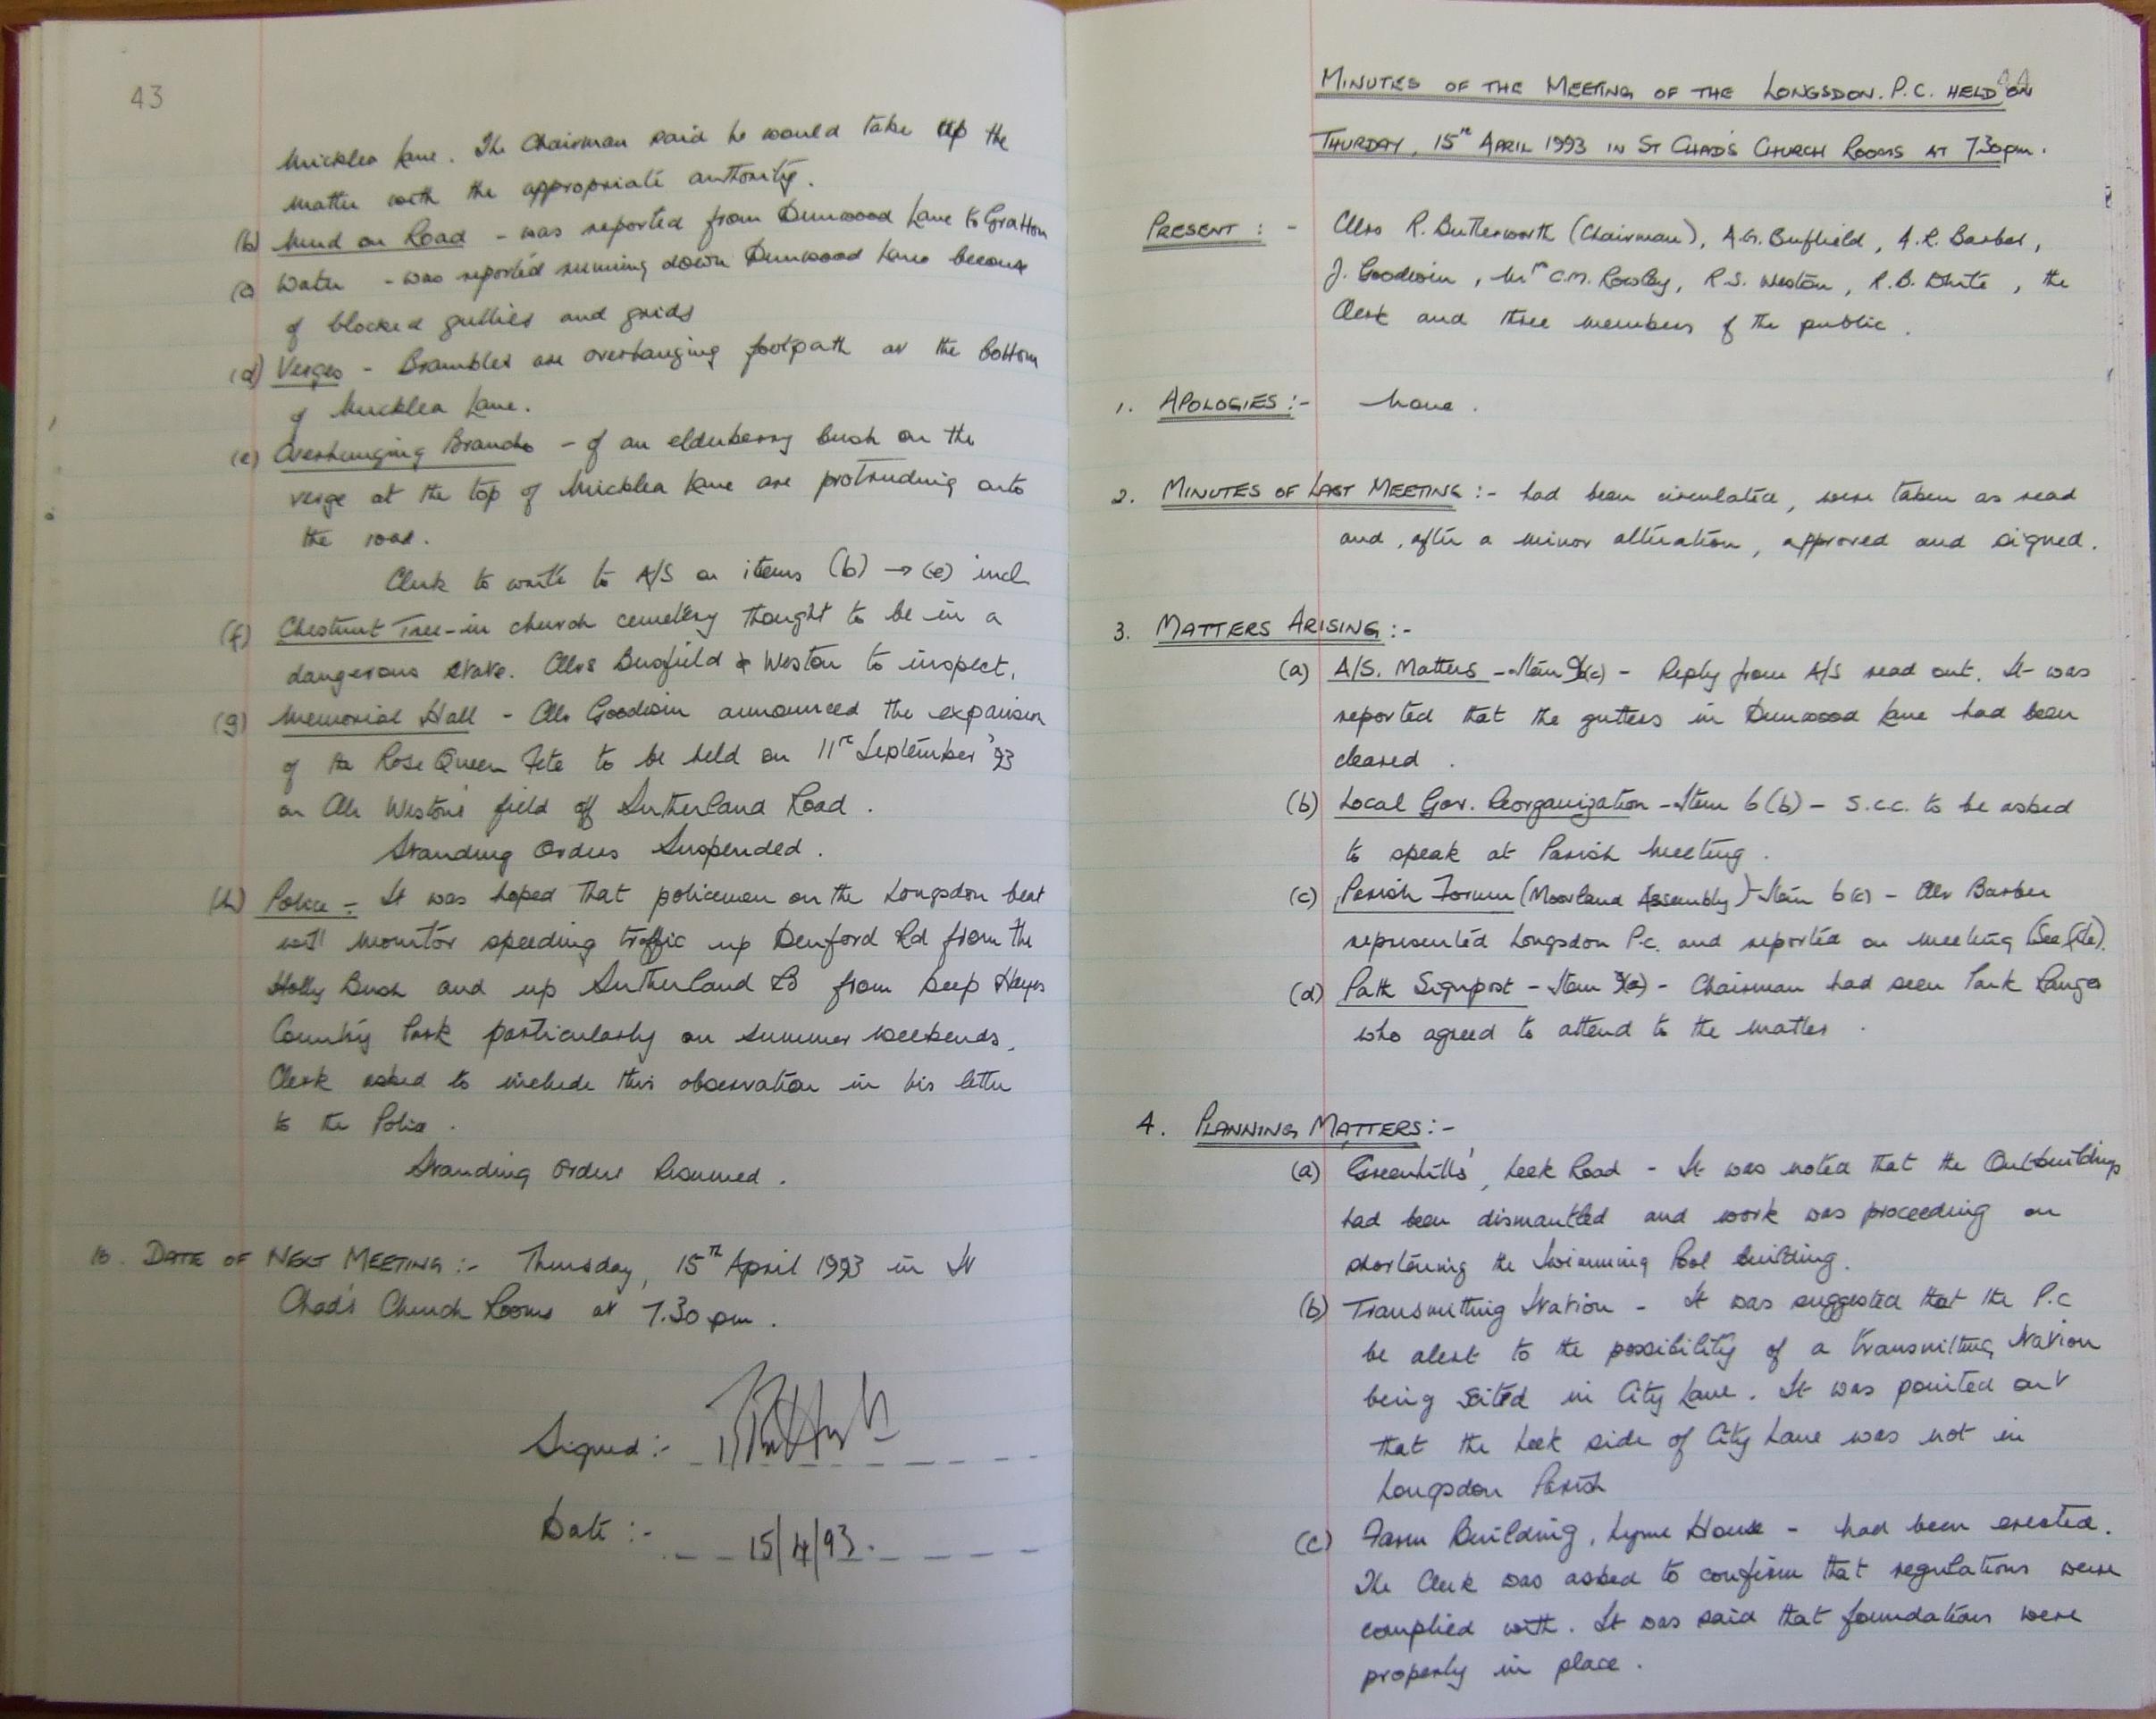 43
Micklea Lane. The Chairman said he would take up the
matter with the appropriate authority.
(b) Mud on Road - was reported from Dunwood Lane to Gratton
(c) Water - was reported running down Dunwood Lane because
of blocked gullies and grids
(d) Verges - Brambles are overhanging footpath at the bottom
of Micklea Lane.
(e) Overhanging Branches - of an elderberry bush on the
verge at the top of Micklea Lane are protruding onto
the road.
Clerk to write to A/S on items (b) → (e) incl
(f) Chestnut Tree - in church cemetery thought to be in a
dangerous state. Cllrs Busfield & Weston to inspect.
(g) Memorial Hall - Cllr Goodwin announced the expansion
of the Rose Queen Fete to be held on 11th September '93
on Cllr Weston's field off Sutherland Road.
Standing Orders Suspended.
(h) Police - It was hoped that policemen on the Longsdon beat
will monitor speeding traffic up Denford Rd from the
Holly Bush and up Sutherland Rd from Deep Hayes
Country Park particularly on summer weekends.
Clerk asked to include this observation in his letter
to the Police.
Standing Orders Resumed.
10. DATE OF NEXT MEETING :- Thursday, 15th April 1993 in St
Chad's Church Rooms at 7.30 pm.
Signed :-
Date :- 15/4/93.
44
MINUTES OF THE MEETING OF THE LONGSDON. P.C. HELD ON
THURDAY, 15th APRIL 1993 IN ST CHADS CHURCH ROOMS AT 7.30pm.
PRESENT : - Cllrs R. Butterworth (Chairman), A.G. Busfield, A.R. Barber,
J. Goodwin, Mrs C.M. Rowley, R.S. Weston, R.B. White, the
Clerk and three members of the public.
1. APOLOGIES :- None.
2. MINUTES OF LAST MEETING :- had been circulated, were taken as read
and, after a minor alteration, approved and signed.
3. MATTERS ARISING :-
(a) A/S. Matters - Item 9(c) - Reply from A/S read out. It was
reported that the gutters in Dunwood Lane had been
cleared.
(b) Local Gov. Reorganization - Item 6(b) - S.C.C. to be asked
to speak at Parish Meeting.
(c) Parish Forum (Moorland Assembly) - Item 6(c) - Cllr Barber
represented Longsdon P.C. and reported on meeting (See file).
(d) Path Signpost - Item 9(a) - Chairman had seen Park Ranger
who agreed to attend to the matter.
4. PLANNING MATTERS :-
(a) 'Greenhills', Leek Road - It was noted that the Outbuildings
had been dismantled and work was proceeding on
shortening the Swimming Pool building.
(b) Transmitting Station - It was suggested that the P.C
be alert to the possibility of a transmitting station
being sited in City Lane. It was pointed out
that the Leek side of City Lane was not in
Longsdon Parish
(c) Farm Building, Lyme House - had been erected.
The Clerk was asked to confirm that regulations were
complied with. It was said that foundations were
properly in place.